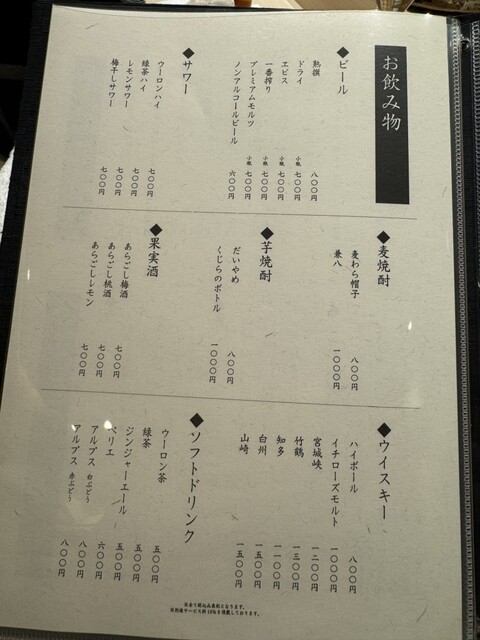 お飲み物
◆ビール
熟撰 八〇〇円
ドライ 小瓶 七〇〇円
エビス 小瓶 七〇〇円
一番搾り 小瓶 七〇〇円
プレミアムモルツ 小瓶 七〇〇円
ノンアルコールビール 六〇〇円
◆サワー
ウーロンハイ 七〇〇円
緑茶ハイ 七〇〇円
レモンサワー 七〇〇円
梅干しサワー 七〇〇円
◆麦焼酎
麦わら帽子 八〇〇円
兼八 一〇〇〇円
◆芋焼酎
だいやめ 八〇〇円
くじらのボトル 一〇〇〇円
◆果実酒
あらごし梅酒 七〇〇円
あらごし桃酒 七〇〇円
あらごしレモン 七〇〇円
◆ウイスキー
ハイボール 八〇〇円
イチローズモルト 一〇〇〇円
宮城峡 一二〇〇円
竹鶴 一三〇〇円
知多 一一〇〇円
白州 一五〇〇円
山崎 一五〇〇円
◆ソフトドリンク
ウーロン茶 五〇〇円
緑茶 五〇〇円
ジンジャーエール 五〇〇円
ペリエ 六〇〇円
アルプス 白ぶどう 八〇〇円
アルプス 赤ぶどう 八〇〇円
※全て税込み表記となります。
※別途サービス料10%を頂戴しております。